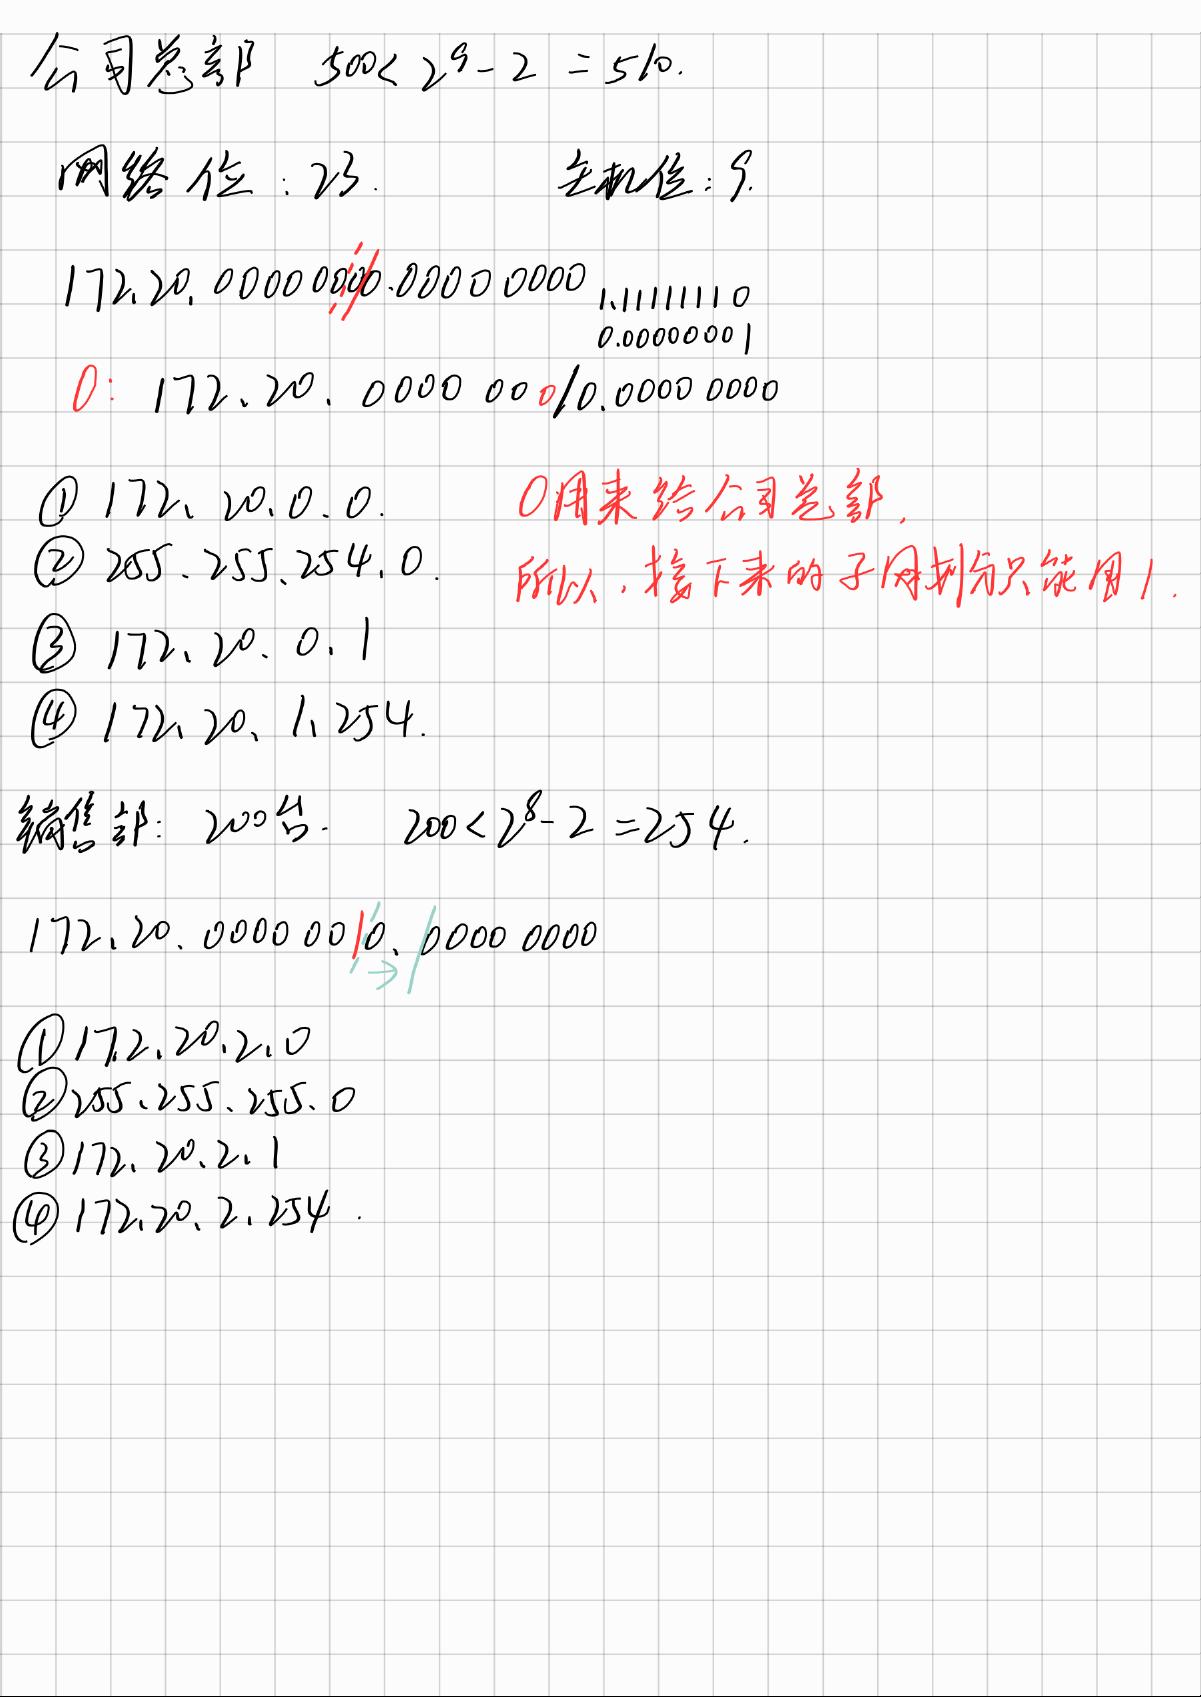 公司总部 500< 2⁹-2 =510.
网络位:23. 主机位:9.
172.20.00000000.000000000
1.11111110
0.00000001
0: 172.20.0000 000/0.0000 0000
① 172.20.0.0. 0用来给公司总部,
② 255.255.254.0. 所以,接下来的子网划分只能用1.
③ 172.20.0.1
④ 172.20.1.254.
销售部: 200台. 200<2⁸-2=254.
172.20.0000 00|0./0000 0000
→
①172.20.2.0
②255.255.255.0
③172.20.2.1
④172.20.2.254.